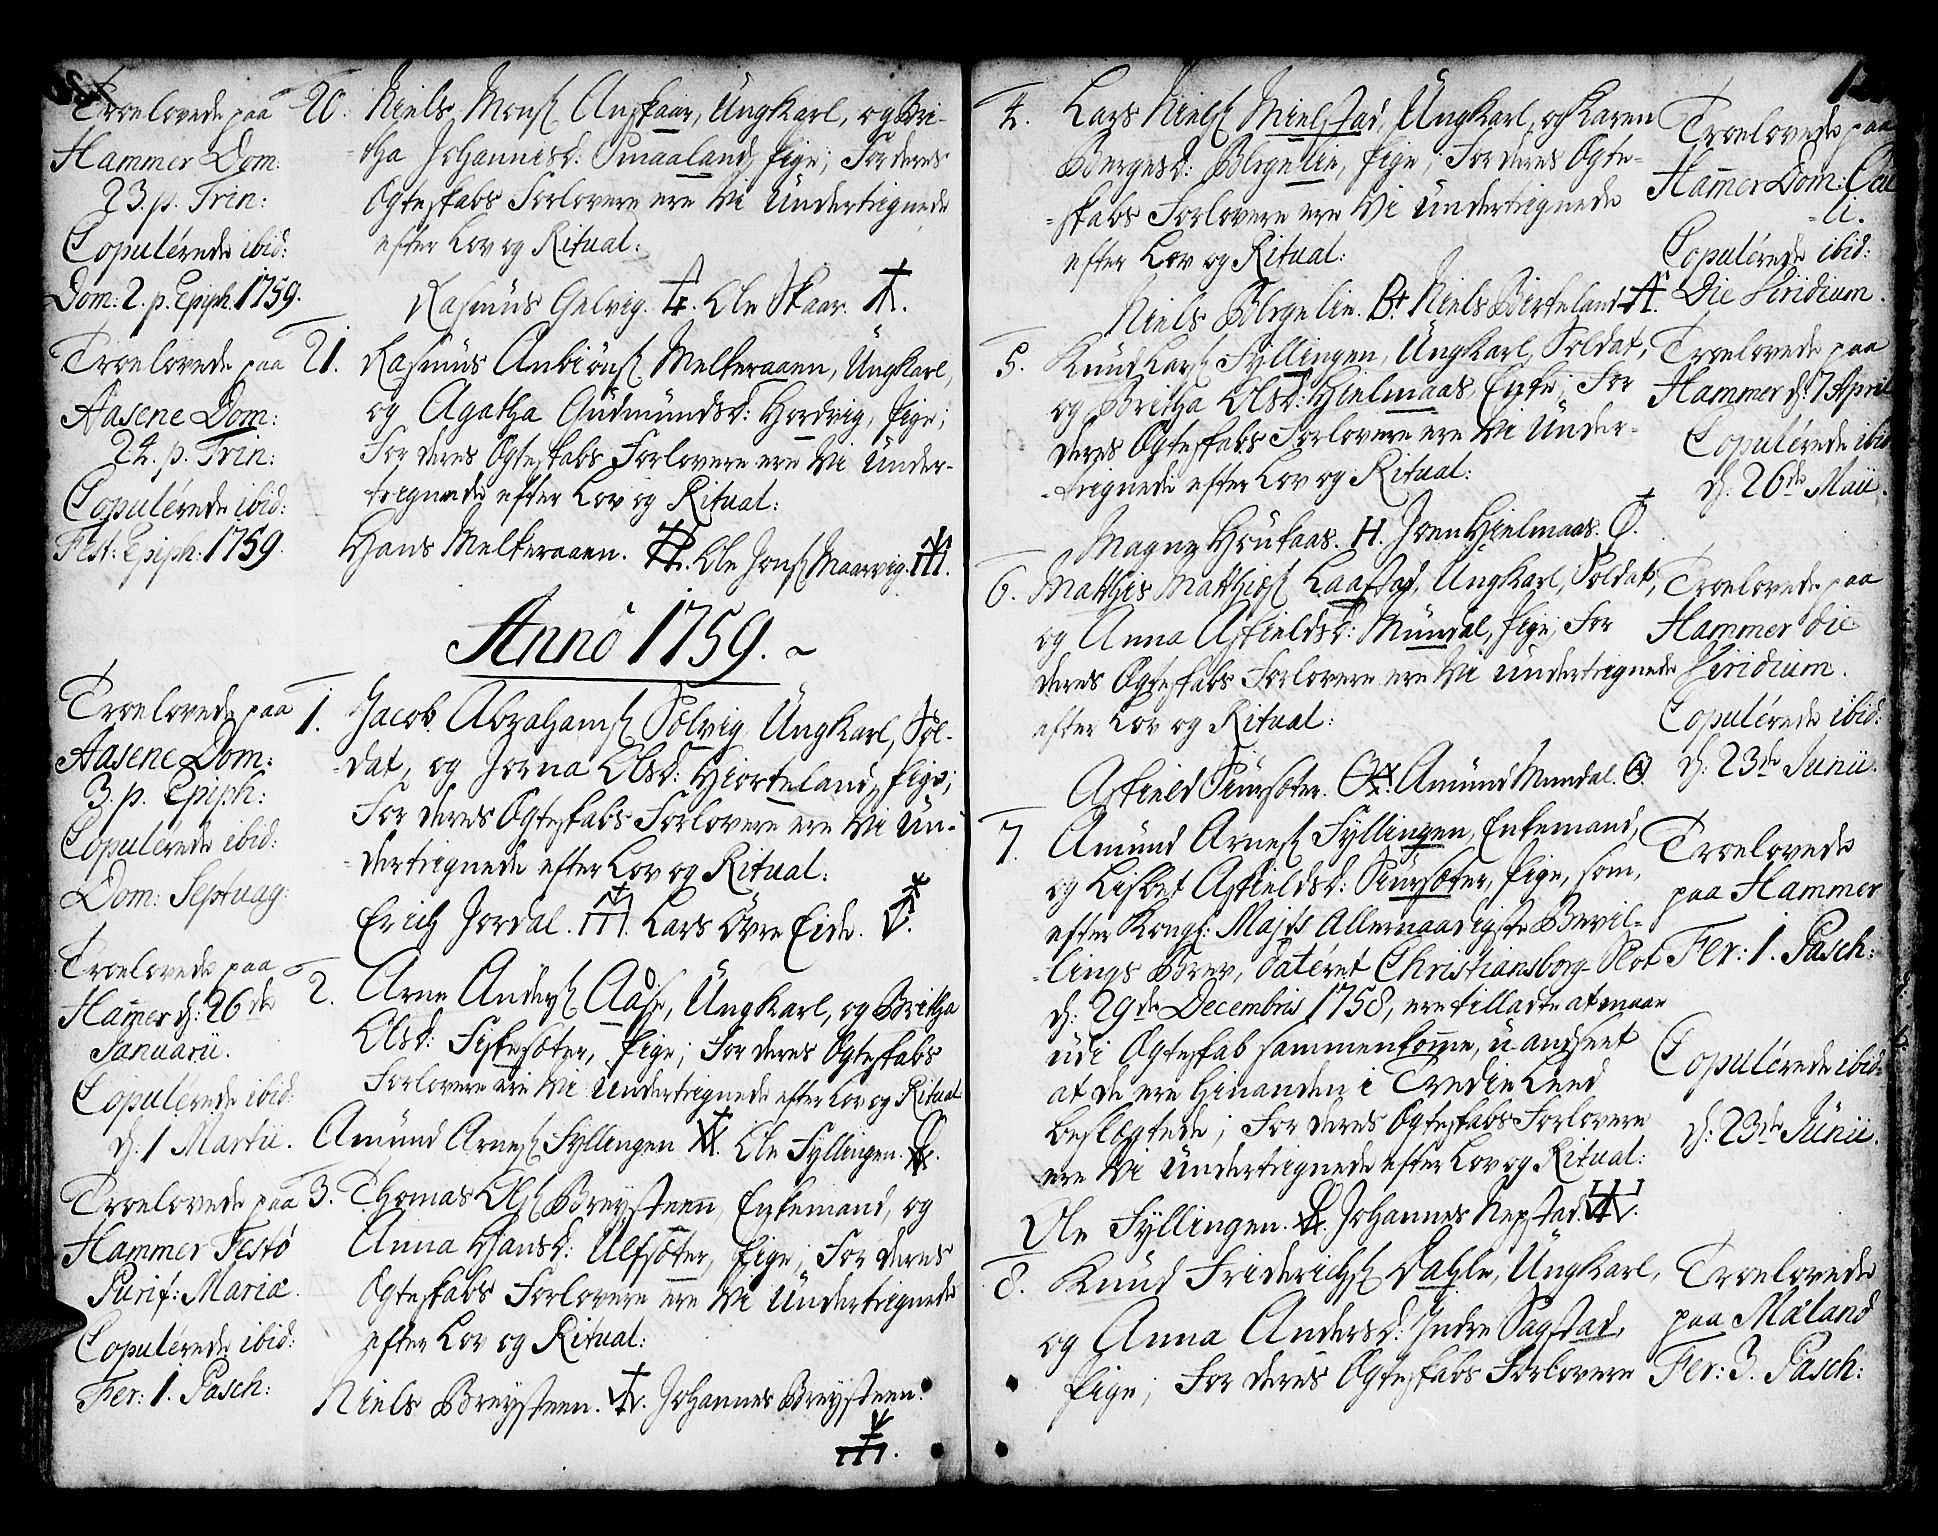 Troelovede paa
Hammer Dom:
23. p. Trin:
Copulérede ibid:
Dom: 2. p. Epiph. 1759.
20. Niels Monsß Anskaar, Ungkarl, og Bri-
-tha Johannesd: Smaaland, Pige; For deres
Ægteskabs Forlovere ere Vi Undertegnede
efter Lov og Ritual:
Rasmus Gelvig. Ole Skaar.
Troelovede paa
Aasene Dom:
24. p. Trin:
Copulérede ibid:
Fest: Epiph: 1759.
21. Rasmus Anbiönsß Melkeraaen, Ungkarl,
og Agatha Gudmundsd: Hordvig, Pige;
For deres Ægteskabs Forlovere ere Vi Under-
-tegnede efter Lov og Ritual:
Hans Melkeraaen. Ole Jonsß Maarvig.
Anno 1759.
Troelovede paa
Aasene Dom:
3. p. Epiph:
Copulérede ibid:
Dom: Septuag:
1. Jacob Abrahamsß Sælvig, Ungkarl, Sol-
-dat, og Jorna Olsd: Hiorteland, Pige;
For deres Ægteskabs Forlovere ere Vi Un-
-dertegnede efter Lov og Ritual:
Erich Jordal. Lars Øvre Eide.
Troelovede paa
Hamer d: 26de
Januarii.
Copulérede ibid:
d: 1 Martii.
2. Arne Andersß Aase, Ungkarl, og Britha
Olsd: Fiskesæter, Pige; For deres Ægteskabs
Forlovere ere Vi Undertegnede efter Lov og Ritual
Amund Arnesß Fyllingen Ole Fyllingen.
Troelovede paa
Hammer Festo
Purif: Mariæ.
Copulérede ibid:
Fer: 1. Pasch:
3. Thomas Olsß Breysteen, Enkemand, og
Anna Hansd: Ulfsæter, Pige; For deres
Ægteskabs Forlovere ere Vi Undertegnede
efter Lov og Ritual:
Niels Breysteen. Johannes Breysteen.
4. Lars Nielsß Mielstad, Ungkarl, og Karen
Børgesd: Blrgelie, Pige; For deres Ægte-
-skabs Forlovere ere Vi Undertegnede
efter Lov og Ritual:
Niels Blrgelie. Niels Birkeland
Troelovede paa
Hamer Dom: Cal
-li.
Copulérede ibid:
Die Viridium.
5. Knud Larsß Fyllingen, Ungkarl, Soldat,
og Britha Olsd: Hielmaas, Enke; For
deres Ægteskabs Forlovere ere Vi Under-
-tegnede efter Lov og Ritual:
Magne Høukaas. Joen Hielmaas.
Troelovede paa
Hammer d: 7 April
Copulérede ibid
d: 26de Maii.
6. Matthis Matthisß Laastad, Ungkarl, Soldat,
og Anna Askieldsd: Mundal, Pige; For
deres Ægteskabs Forlovere ere Vi Undertegnede
efter Lov og Ritual:
Askield Siursæter. Amund Mundal.
Troelovede paa
Hammer die
Viridium.
Copulérede ibid:
d: 23de Junii.
7. Amund Arnesß Fyllingen, Enkemand,
og Lisbet Askieldsd: Siursæter, Pige, som,
efter Kongl: Majts Allernaadigste Bevil-
-lings Brev, datéret Christiansborg-Slot
d: 29de Decembris 1758, ere tilladte at maae
udi Ægteskab sammenkome, u-andseet
at de ere hinanden i Tredie Leed
beslægtede; For deres Ægteskabs Forlovere
ere Vi Undertegnede efter Lov og Ritual:
Ole Fyllingen. Johannes Nepstad.
Troelovede
paa Hammer
Fer: 1. Pasch:
Copulérede ibid:
d: 23de Junii.
8. Knud Friderichsß Dahle, Ungkarl,
og Anna Andersd: Indre Sagstad,
Pige; For deres Ægteskabs Forlovere
Troelovede
paa Mæland
Fer: 3. Pasch: